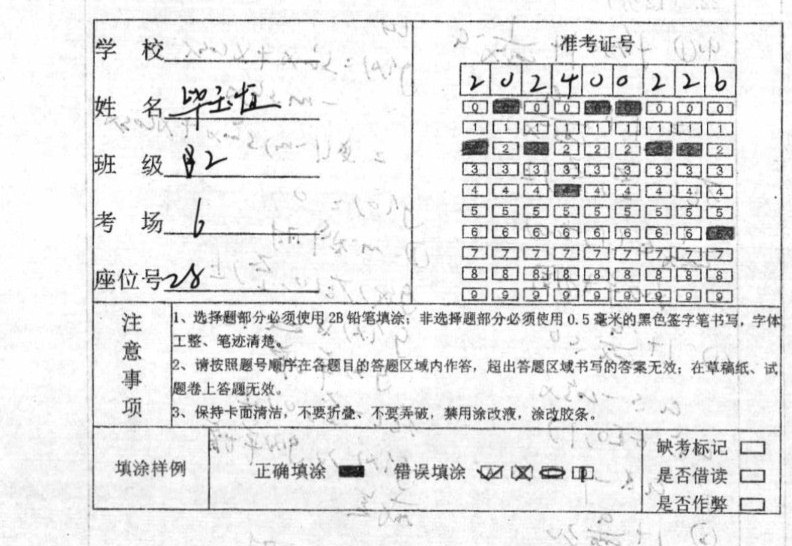 学 校
准考证号
2 0 2 4 0 0 2 2 6
姓 名 毕玉恒
0 0 0 0 0
1 1 1 1 1 1 1 1 1
班 级 82
2 2 2 2 2
3 3 3 3 3 3 3 3 3
4 4 4 4 4 4 4 4
考 场 6
5 5 5 5 5 5 5 5 5
6 6 6 6 6 6 6 6
7 7 7 7 7 7 7 7 7
座位号 28
8 8 8 8 8 8 8 8 8
9 9 9 9 9 9 9 9 9
注意事项
1、选择题部分必须使用 2B 铅笔填涂；非选择题部分必须使用 0.5 毫米的黑色签字笔书写，字体
工整、笔迹清楚。
2、请按照题号顺序在各题目的答题区域内作答，超出答题区域书写的答案无效；在草稿纸、试
题卷上答题无效。
3、保持卡面清洁，不要折叠、不要弄破，禁用涂改液，涂改胶条。
填涂样例
正确填涂
错误填涂
缺考标记
是否借读
是否作弊